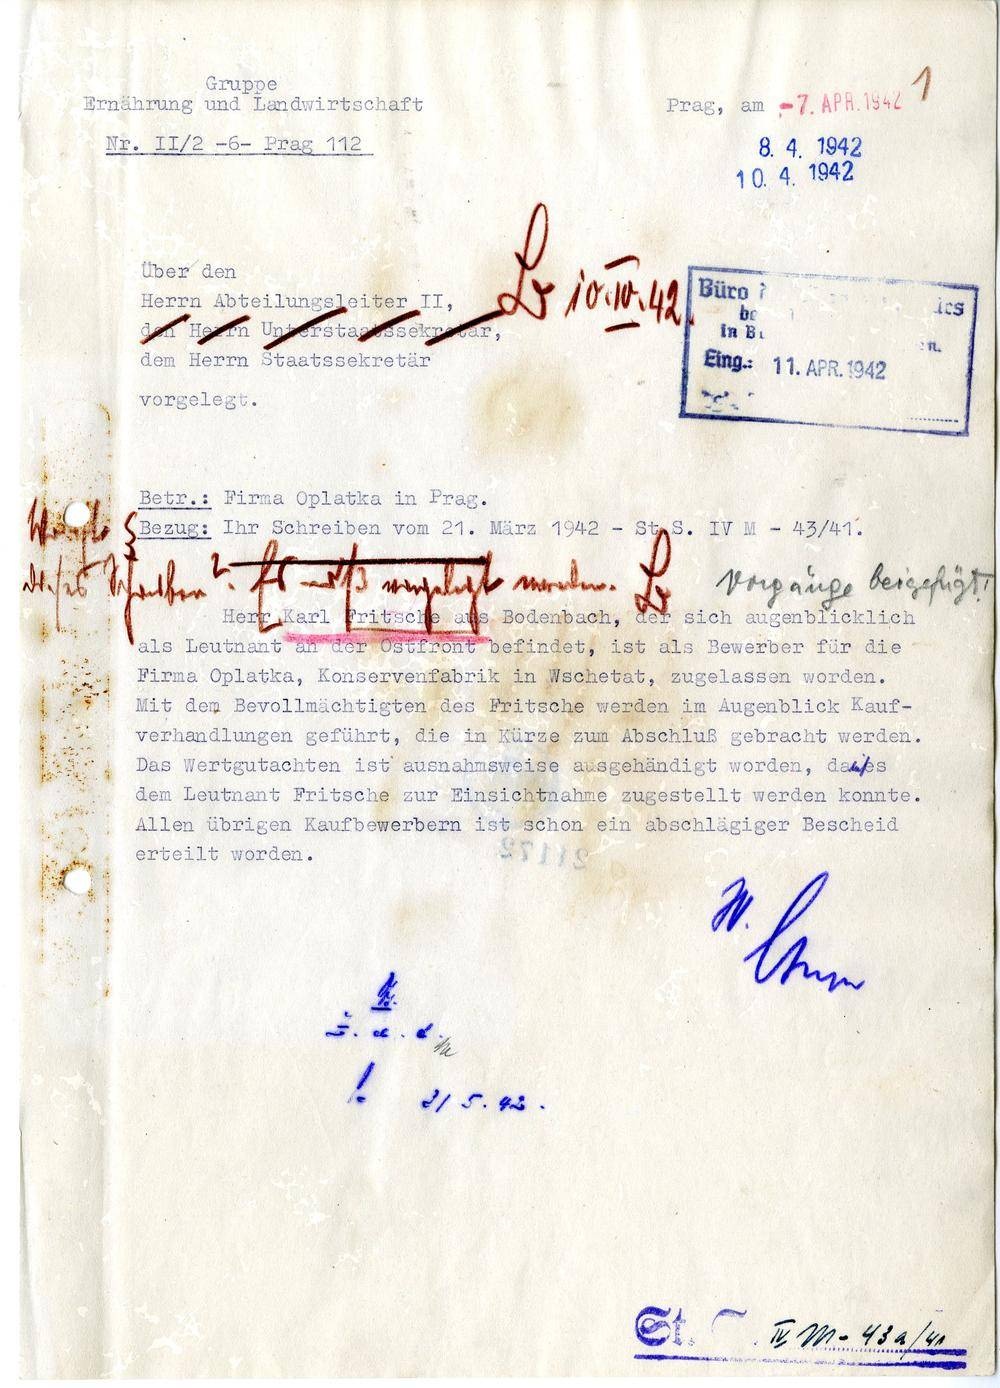 Gruppe
Ernährung und Landwirtschaft
Nr. II/2 -6- Prag 112
Prag, am -7. APR. 1942
1
8. 4. 1942
10. 4. 1942
Über den
Herrn Abteilungsleiter II,
den Herrn Unterstaatssekretär,
dem Herrn Staatssekretär
vorgelegt.
10.IV.42.
Büro
in
Eing.: 11. APR. 1942
Betr.: Firma Oplatka in Prag.
Bezug: Ihr Schreiben vom 21. März 1942 - St.S. IV M - 43/41.
dieses Schreiben? Es muß vorgelegt werden.
Vorgänge beigefügt!
Herr Karl Fritsche aus Bodenbach, der sich augenblicklich
als Leutnant an der Ostfront befindet, ist als Bewerber für die
Firma Oplatka, Konservenfabrik in Wschetat, zugelassen worden.
Mit dem Bevollmächtigten des Fritsche werden im Augenblick Kauf-
verhandlungen geführt, die in Kürze zum Abschluß gebracht werden.
Das Wertgutachten ist ausnahmsweise ausgehändigt worden, da es
dem Leutnant Fritsche zur Einsichtnahme zugestellt werden konnte.
Allen übrigen Kaufbewerbern ist schon ein abschlägiger Bescheid
erteilt worden.
21172
z. d. A.
21 5. 42.
St. S. IV M - 43a/41